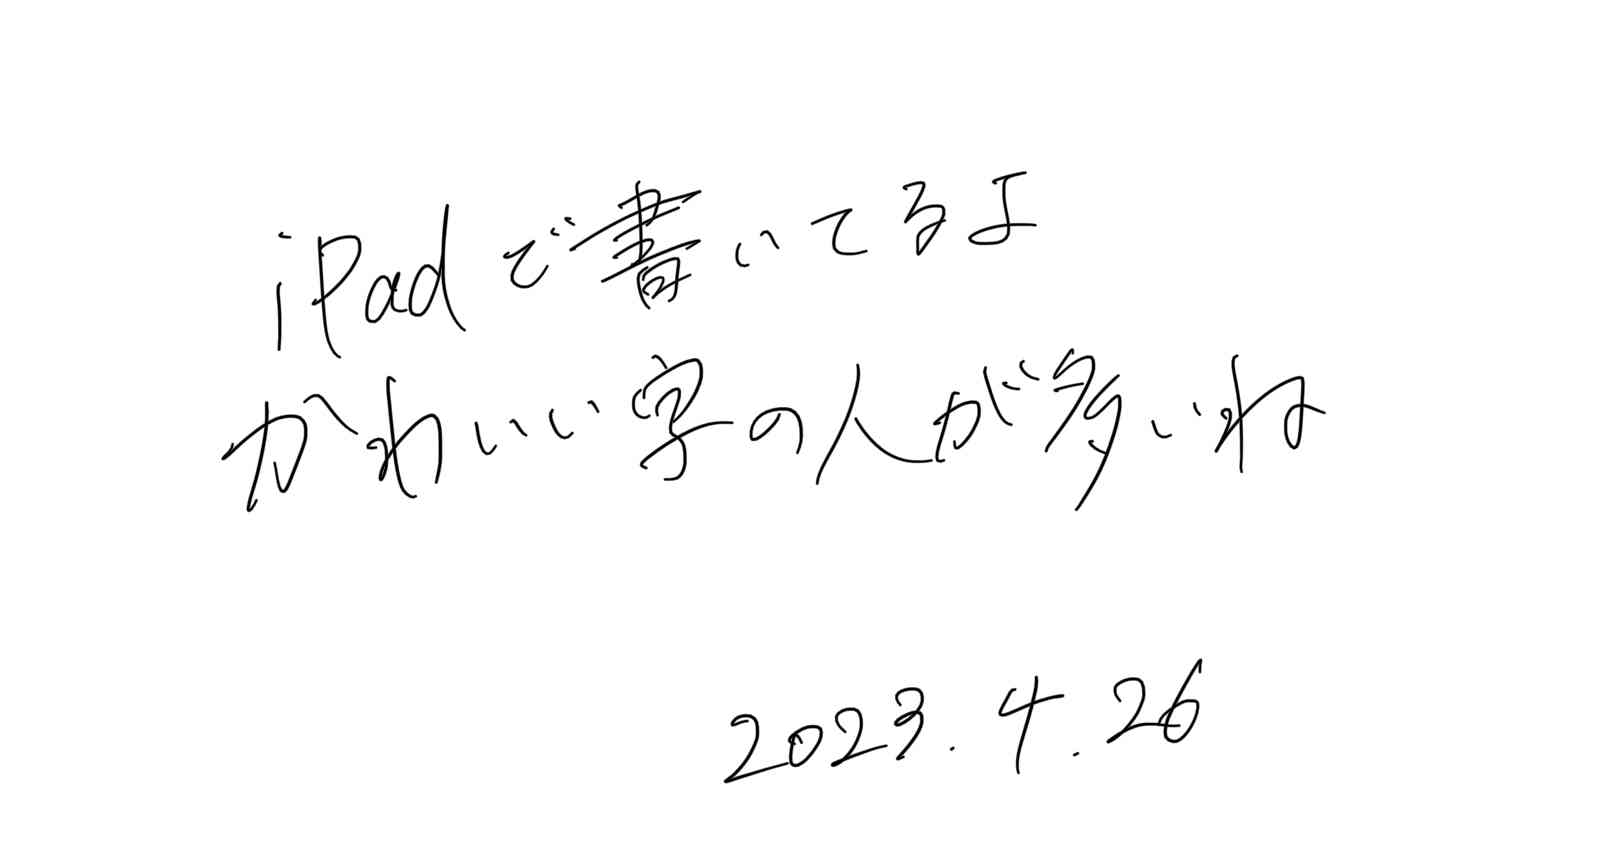 iPadで書いてるよ
かわいい字の人が多いね
2023.4.26